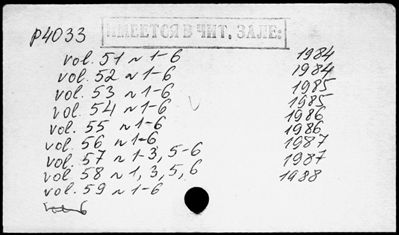 р4033
ИМЕЕТСЯ В ЧИТ. ЗАЛЕ:
vol. 51 N 1-6 1984
vol. 52 N 1-6 1984
vol. 53 N 1-6 1985
vol. 54 N 1-6 1985
vol. 55 N 1-6 1986
vol. 56 N 1-6 1986
vol. 57 N 1-3, 5-6 1987
vol. 58 N 1, 3, 5, 6 1987
vol. 59 N 1-6 1988